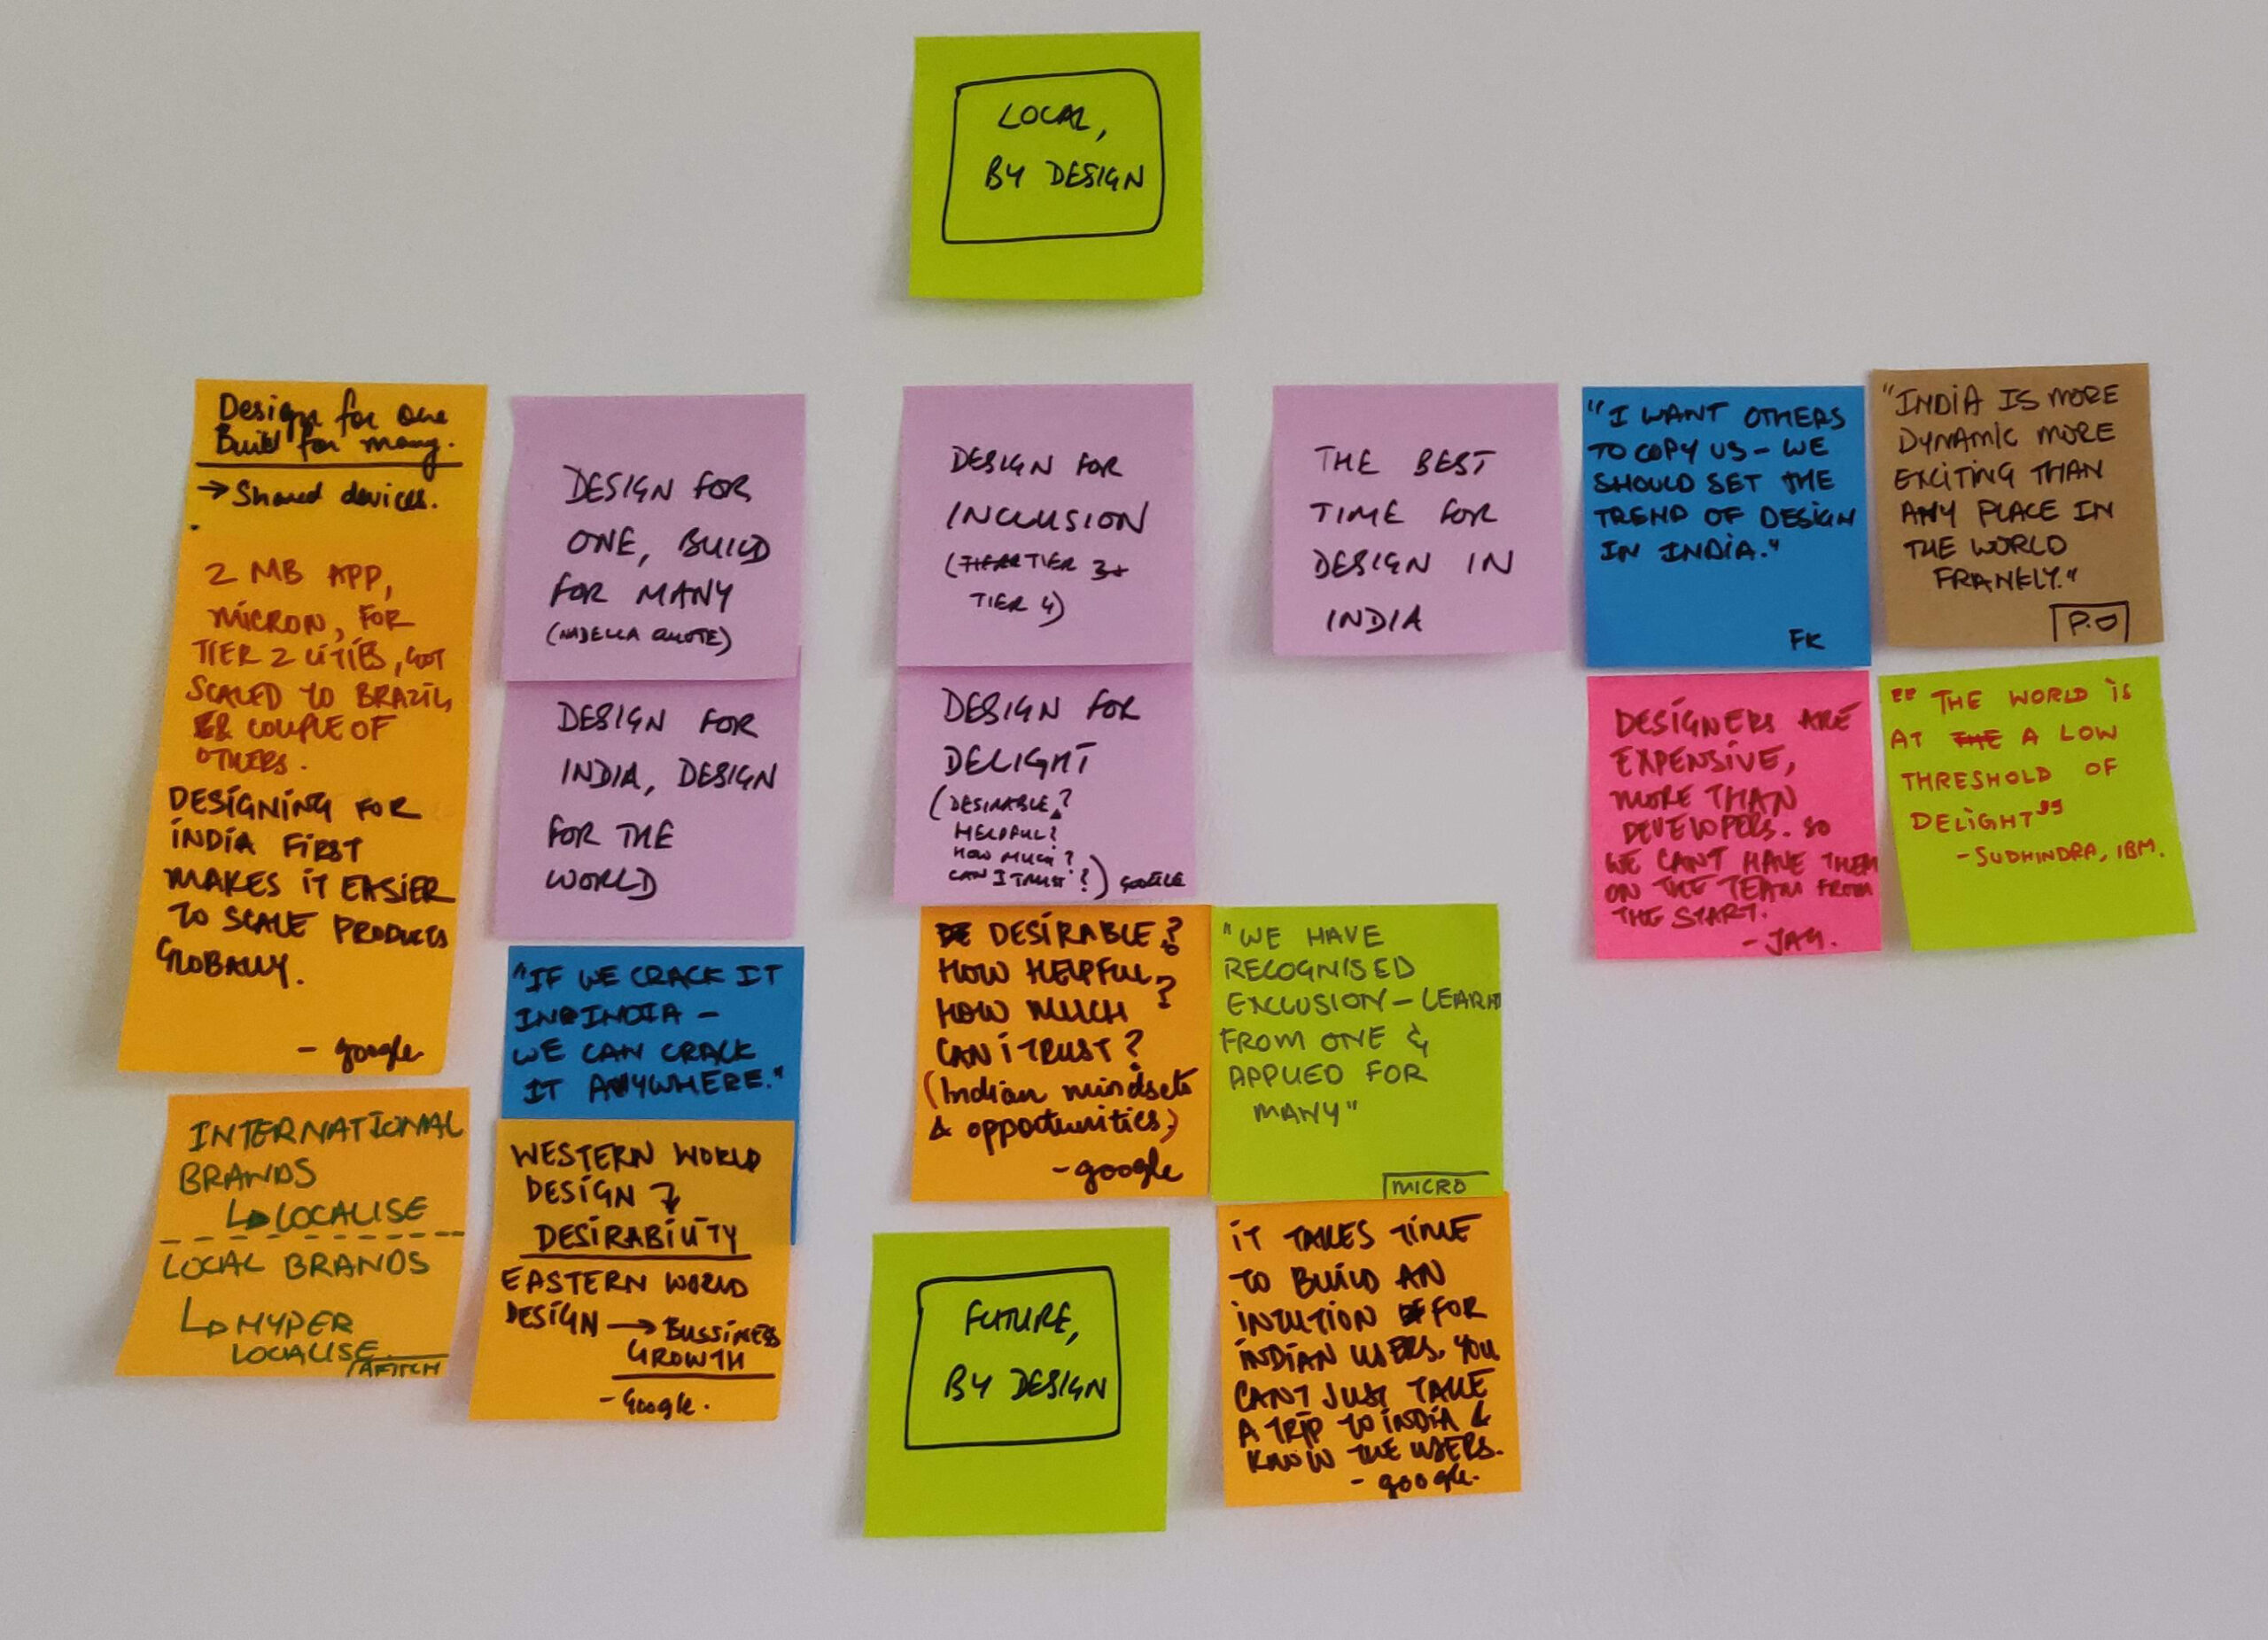 LOCAL,
BY DESIGN
Design for one
Build for many.
→ Shared devices.
2 MB APP,
MICRON, FOR
TIER 2 CITIES, GOT
SCALED TO BRAZIL
& COUPLE OF
OTHERS.
DESIGNING FOR
INDIA FIRST
MAKES IT EASIER
TO SCALE PRODUCTS
GLOBALLY.
- google
INTERNATIONAL
BRANDS
↳ LOCALISE
LOCAL BRANDS
↳ HYPER
LOCALISE
AFITCH
DESIGN FOR
ONE, BUILD
FOR MANY
(NADELLA QUOTE)
DESIGN FOR
INDIA, DESIGN
FOR THE
WORLD
"IF WE CRACK IT
IN INDIA –
WE CAN CRACK
IT ANYWHERE."
WESTERN WORLD
DESIGN →
DESIRABILITY
EASTERN WORLD
DESIGN → BUSSINESS
GROWTH
- Google.
DESIGN FOR
INCLUSION
(TIER 3+
TIER 4)
DESIGN FOR
DELIGHT
(DESIRABLE?
HELPFUL?
HOW MUCH?
CAN I TRUST?) GOOGLE
DESIRABLE?
HOW HELPFUL?
HOW MUCH?
CAN I TRUST?
(Indian mindsets
& opportunities)
- google
"WE HAVE
RECOGNISED
EXCLUSION – LEARN
FROM ONE &
APPLIED FOR
MANY"
MICRO
FUTURE,
BY DESIGN
IT TAKES TIME
TO BUILD AN
INTUTION FOR
INDIAN USERS. YOU
CANT JUST TAKE
A TRIP TO INDIA &
KNOW THE USERS.
- google.
THE BEST
TIME FOR
DESIGN IN
INDIA
"I WANT OTHERS
TO COPY US – WE
SHOULD SET THE
TREND OF DESIGN
IN INDIA."
FK
"INDIA IS MORE
DYNAMIC MORE
EXCITING THAN
ANY PLACE IN
THE WORLD
FRANKLY."
P.O
DESIGNERS ARE
EXPENSIVE,
MORE THAN
DEVELOPERS. SO
WE CANT HAVE THEM
ON THE TEAM FROM
THE START.
- JAY.
"THE WORLD IS
AT THE A LOW
THRESHOLD OF
DELIGHT"
- SUDHINDRA, IBM.